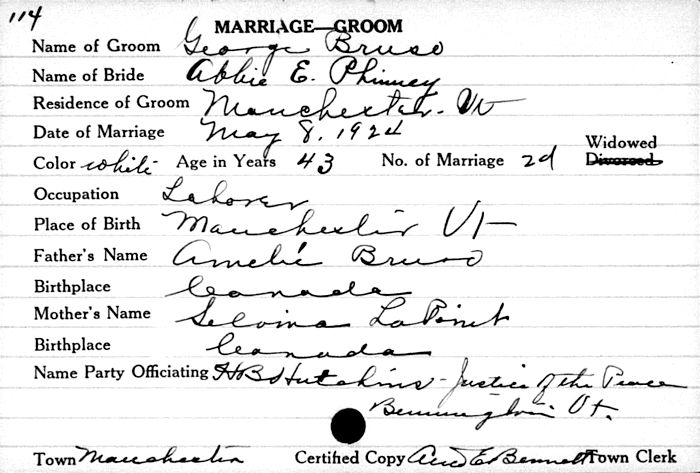 114
MARRIAGE—GROOM
Name of Groom George Bruso
Name of Bride Abbie E. Phinney
Residence of Groom Manchester. Vt
Date of Marriage May 8, 1924
Widowed
Color white Age in Years 43 No. of Marriage 2d Divorced
Occupation Laborer
Place of Birth Manchester Vt
Father's Name Amelié Bruso
Birthplace Canada
Mother's Name Selvina LaPoint
Birthplace Canada
Name Party Officiating H B Hutchins - Justice of the Peace
Bennington Vt.
Town Manchester Certified Copy E Bennett Town Clerk